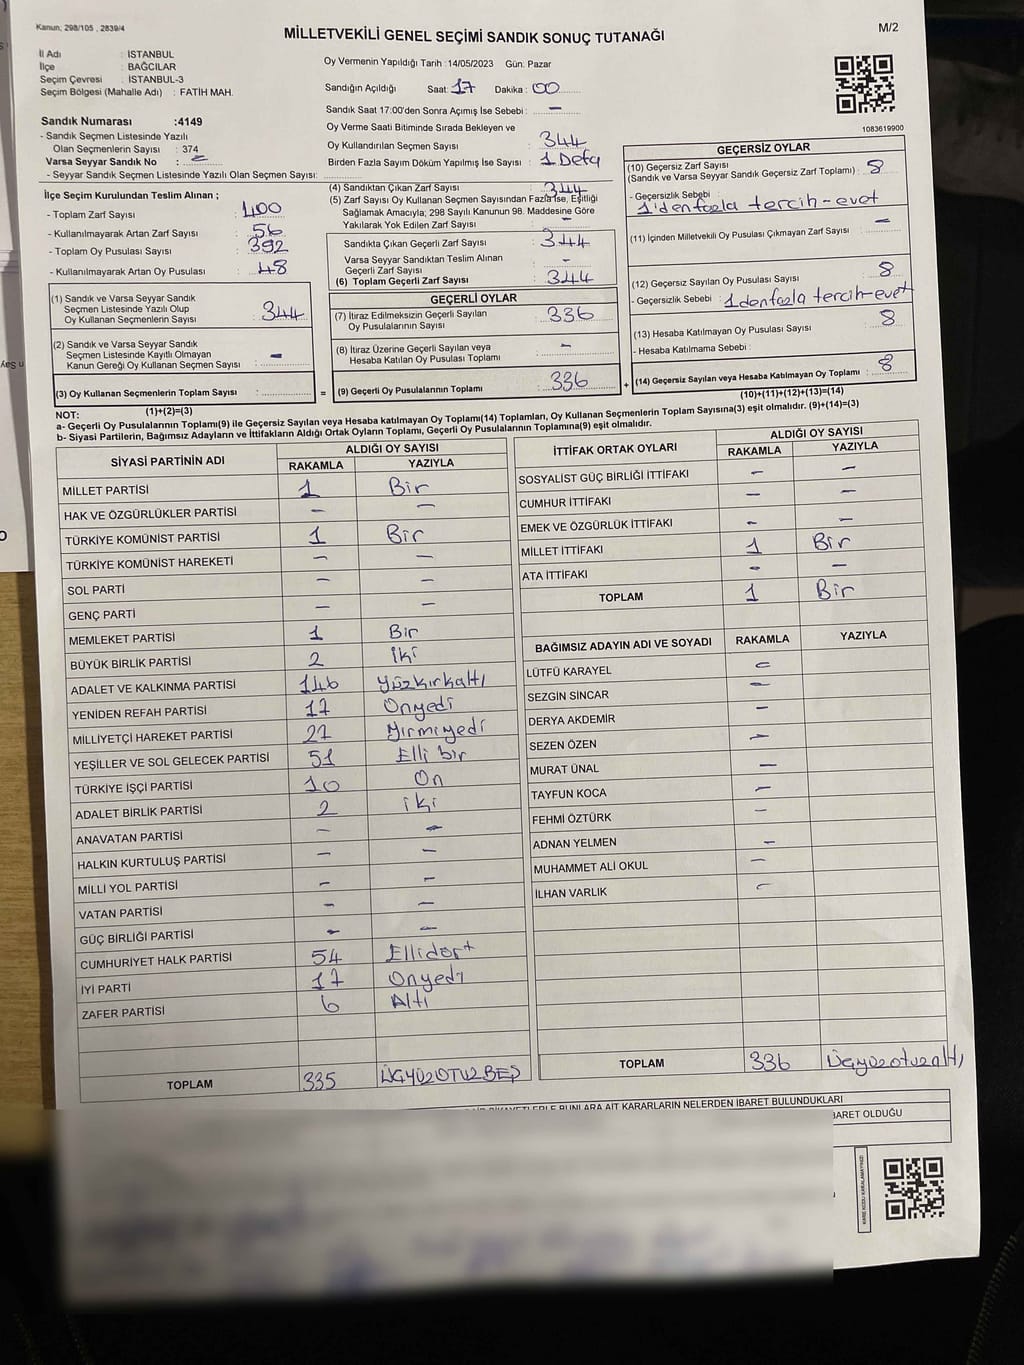 Kanun; 298/105 , 2839/4
MİLLETVEKİLİ GENEL SEÇİMİ SANDIK SONUÇ TUTANAĞI
M/2
İl Adı : İSTANBUL
İlçe : BAĞCILAR
Seçim Çevresi : İSTANBUL-3
Seçim Bölgesi (Mahalle Adı) : FATİH MAH.
Sandık Numarası :4149
- Sandık Seçmen Listesinde Yazılı
Olan Seçmenlerin Sayısı : 374
Varsa Seyyar Sandık No : –
- Seyyar Sandık Seçmen Listesinde Yazılı Olan Seçmen Sayısı:
Oy Vermenin Yapıldığı Tarih :14/05/2023 Gün: Pazar
Sandığın Açıldığı Saat: 17 Dakika : 00
Sandık Saat 17:00'den Sonra Açımış İse Sebebi : –
Oy Verme Saati Bitiminde Sırada Bekleyen ve
Oy Kullandırılan Seçmen Sayısı : 344
Birden Fazla Sayım Döküm Yapılmış İse Sayısı : 1 Defa
1083619900
İlçe Seçim Kurulundan Teslim Alınan ;
- Toplam Zarf Sayısı : 400
- Kullanılmayarak Artan Zarf Sayısı : 56
- Toplam Oy Pusulası Sayısı : 392
- Kullanılmayarak Artan Oy Pusulası : 48
(1) Sandık ve Varsa Seyyar Sandık
Seçmen Listesinde Yazılı Olup
Oy Kullanan Seçmenlerin Sayısı : 344
(2) Sandık ve Varsa Seyyar Sandık
Seçmen Listesinde Kayıtlı Olmayan
Kanun Gereği Oy Kullanan Seçmen Sayısı : –
(3) Oy Kullanan Seçmenlerin Toplam Sayısı :
(1)+(2)=(3)
(4) Sandıktan Çıkan Zarf Sayısı : 344
(5) Zarf Sayısı Oy Kullanan Seçmen Sayısından Fazla İse, Eşitliği
Sağlamak Amacıyla; 298 Sayılı Kanunun 98. Maddesine Göre
Yakılarak Yok Edilen Zarf Sayısı : –
Sandıkta Çıkan Geçerli Zarf Sayısı : 344
Varsa Seyyar Sandıktan Teslim Alınan
Geçerli Zarf Sayısı : –
(6) Toplam Geçerli Zarf Sayısı : 344
GEÇERLİ OYLAR
(7) İtiraz Edilmeksizin Geçerli Sayılan
Oy Pusulalarının Sayısı : 336
(8) İtiraz Üzerine Geçerli Sayılan veya
Hesaba Katılan Oy Pusulası Toplamı : –
= (9) Geçerli Oy Pusulalarının Toplamı : 336
GEÇERSİZ OYLAR
(10) Geçersiz Zarf Sayısı
(Sandık ve Varsa Seyyar Sandık Geçersiz Zarf Toplamı) : 8
- Geçersizlik Sebebi :
1'den fazla tercih-evet
(11) İçinden Milletvekili Oy Pusulası Çıkmayan Zarf Sayısı : –
(12) Geçersiz Sayılan Oy Pusulası Sayısı : 8
- Geçersizlik Sebebi : 1 den fazla tercih-evet
(13) Hesaba Katılmayan Oy Pusulası Sayısı : 8
- Hesaba Katılmama Sebebi :
+ (14) Geçersiz Sayılan veya Hesaba Katılmayan Oy Toplamı : 8
(10)+(11)+(12)+(13)=(14)
NOT:
a- Geçerli Oy Pusulalarının Toplamı(9) ile Geçersiz Sayılan veya Hesaba katılmayan Oy Toplamı(14) Toplamları, Oy Kullanan Seçmenlerin Toplam Sayısına(3) eşit olmalıdır. (9)+(14)=(3)
b- Siyasi Partilerin, Bağımsız Adayların ve İttifakların Aldığı Ortak Oyların Toplamı, Geçerli Oy Pusulalarının Toplamına(9) eşit olmalıdır.
SİYASİ PARTİNİN ADI
ALDIĞI OY SAYISI
RAKAMLA YAZIYLA
MİLLET PARTİSİ 1 Bir
HAK VE ÖZGÜRLÜKLER PARTİSİ – –
TÜRKİYE KOMÜNİST PARTİSİ 1 Bir
TÜRKİYE KOMÜNİST HAREKETİ – –
SOL PARTİ – –
GENÇ PARTİ – –
MEMLEKET PARTİSİ 1 Bir
BÜYÜK BİRLİK PARTİSİ 2 iki
ADALET VE KALKINMA PARTİSİ 146 Yüzkırkaltı
YENİDEN REFAH PARTİSİ 17 Onyedi
MİLLİYETÇİ HAREKET PARTİSİ 27 Yirmiyedi
YEŞİLLER VE SOL GELECEK PARTİSİ 51 Elli bir
TÜRKİYE İŞÇİ PARTİSİ 10 On
ADALET BİRLİK PARTİSİ 2 iki
ANAVATAN PARTİSİ – –
HALKIN KURTULUŞ PARTİSİ – –
MİLLİ YOL PARTİSİ – –
VATAN PARTİSİ – –
GÜÇ BİRLİĞİ PARTİSİ – –
CUMHURİYET HALK PARTİSİ 54 Ellidört
İYİ PARTİ 17 Onyedi
ZAFER PARTİSİ 6 Altı
TOPLAM 335 ÜÇYÜZOTUZBEŞ
İTTİFAK ORTAK OYLARI
ALDIĞI OY SAYISI
RAKAMLA YAZIYLA
SOSYALİST GÜÇ BİRLİĞİ İTTİFAKI – –
CUMHUR İTTİFAKI – –
EMEK VE ÖZGÜRLÜK İTTİFAKI – –
MİLLET İTTİFAKI 1 Bir
ATA İTTİFAKI – –
TOPLAM 1 Bir
BAĞIMSIZ ADAYIN ADI VE SOYADI RAKAMLA YAZIYLA
LÜTFÜ KARAYEL –
SEZGİN SİNCAR –
DERYA AKDEMİR –
SEZEN ÖZEN –
MURAT ÜNAL –
TAYFUN KOCA –
FEHMİ ÖZTÜRK –
ADNAN YELMEN –
MUHAMMET ALİ OKUL –
İLHAN VARLIK –
TOPLAM 336 Üçyüzotuzaltı
BUNLARA AİT KARARLARIN NELERDEN İBARET BULUNDUKLARI
OLDUĞU